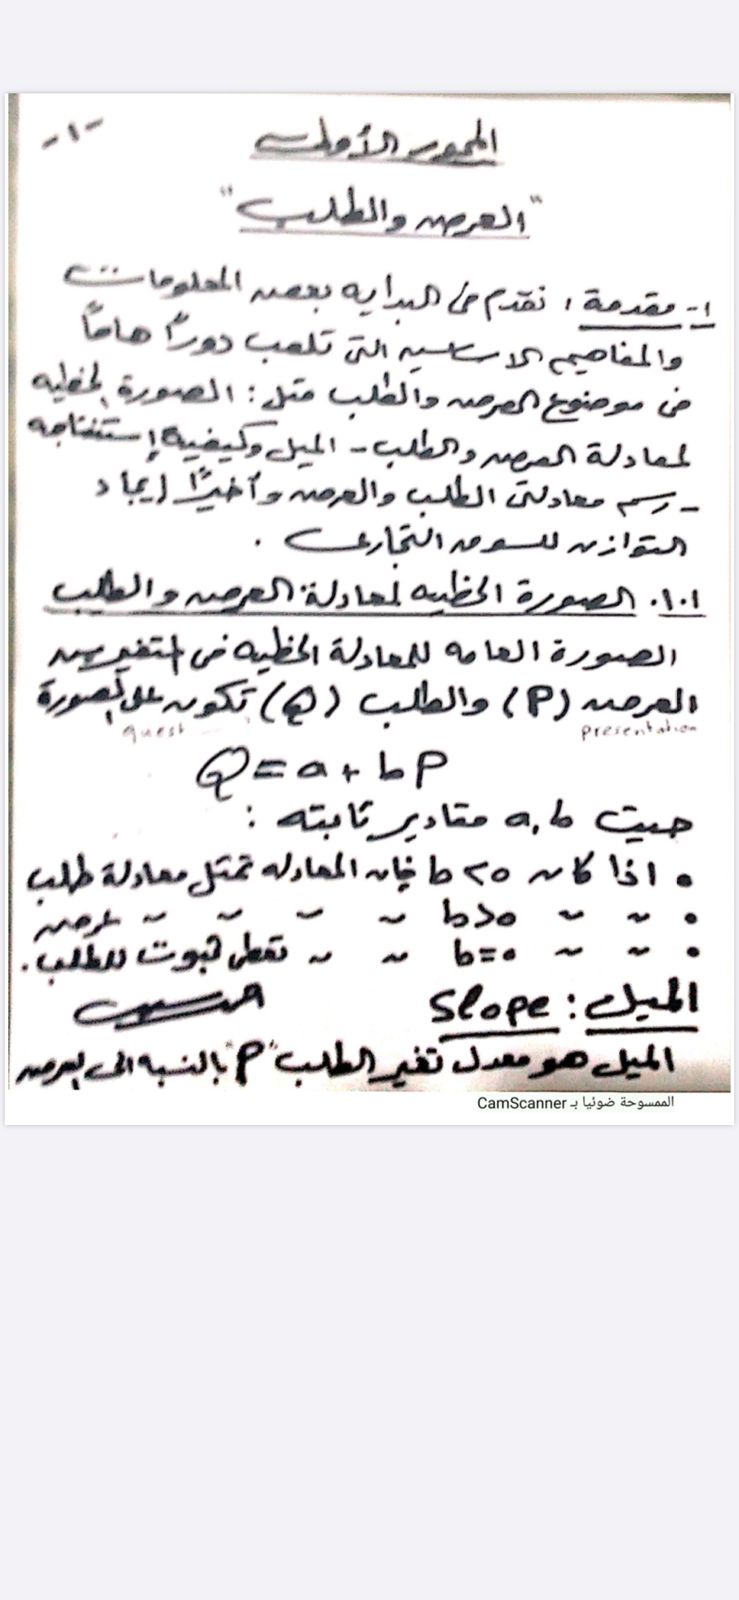 -١-
المحور الأول
"العرض والطلب"
١- مقدمة : نقدم فى البدايه بعض المعلومات
والمفاهيم الاساسيه التى تلعب دورًا هامًا
فى موضوع العرض والطلب مثل : الصورة الخطيه
لمعادلة العرض والطلب - الميل وكيفية إستنتاجه
- رسم معادلتى الطلب والعرض وأخيرًا إيجاد
التوازن للسوق التجارى .
١.١. الصورة الخطيه لمعادلة العرض والطلب
الصورة العامه للمعادلة الخطيه فى متغيرين
العرض (P) والطلب (Q) تكون على الصورة
presentation quest
Q = a + bP
حيث a, b مقادير ثابته :
• اذا كان b < 0 فإن المعادله تمثل معادلة طلب
• " " b > 0 " " " " عرض
• " " b = 0 " " تعطى ثبوت للطلب.
الميل : Slope
الميل هو معدل تغير الطلب "P" بالنسبه الى العرض
الممسوحة ضوئيا بـ CamScanner